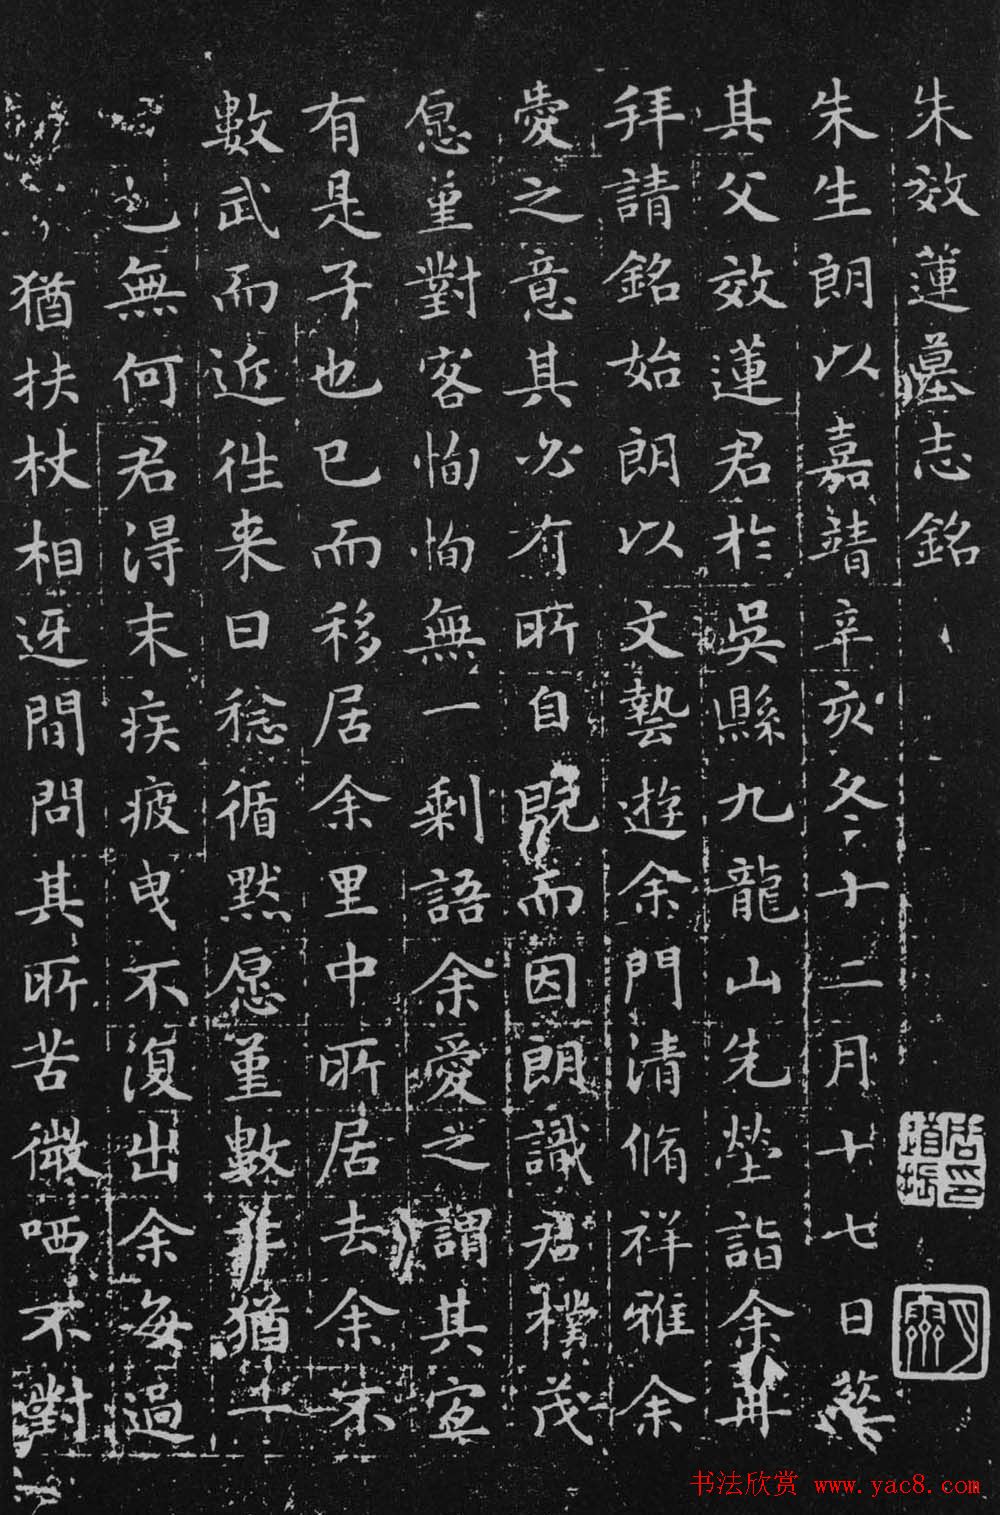 朱效蓮墓志銘
朱生朗以嘉靖辛亥冬十二月十七日葬
其父效蓮君於吳縣九龍山先塋詣余再
拜請銘始朗以文藝遊余門清脩祥雅余
愛之意其必有所自既而因朗識君樸茂
愿重對客恂恂無一剩語余愛之謂其宜
有是子也已而移居余里中所居去余不
數武而近往来日稔循默愿重數年猶一
日也無何君得末疾疲曳不復出余每過
猶扶杖相迓間問其所苦微哂不對
書法欣赏 www.yac8.com